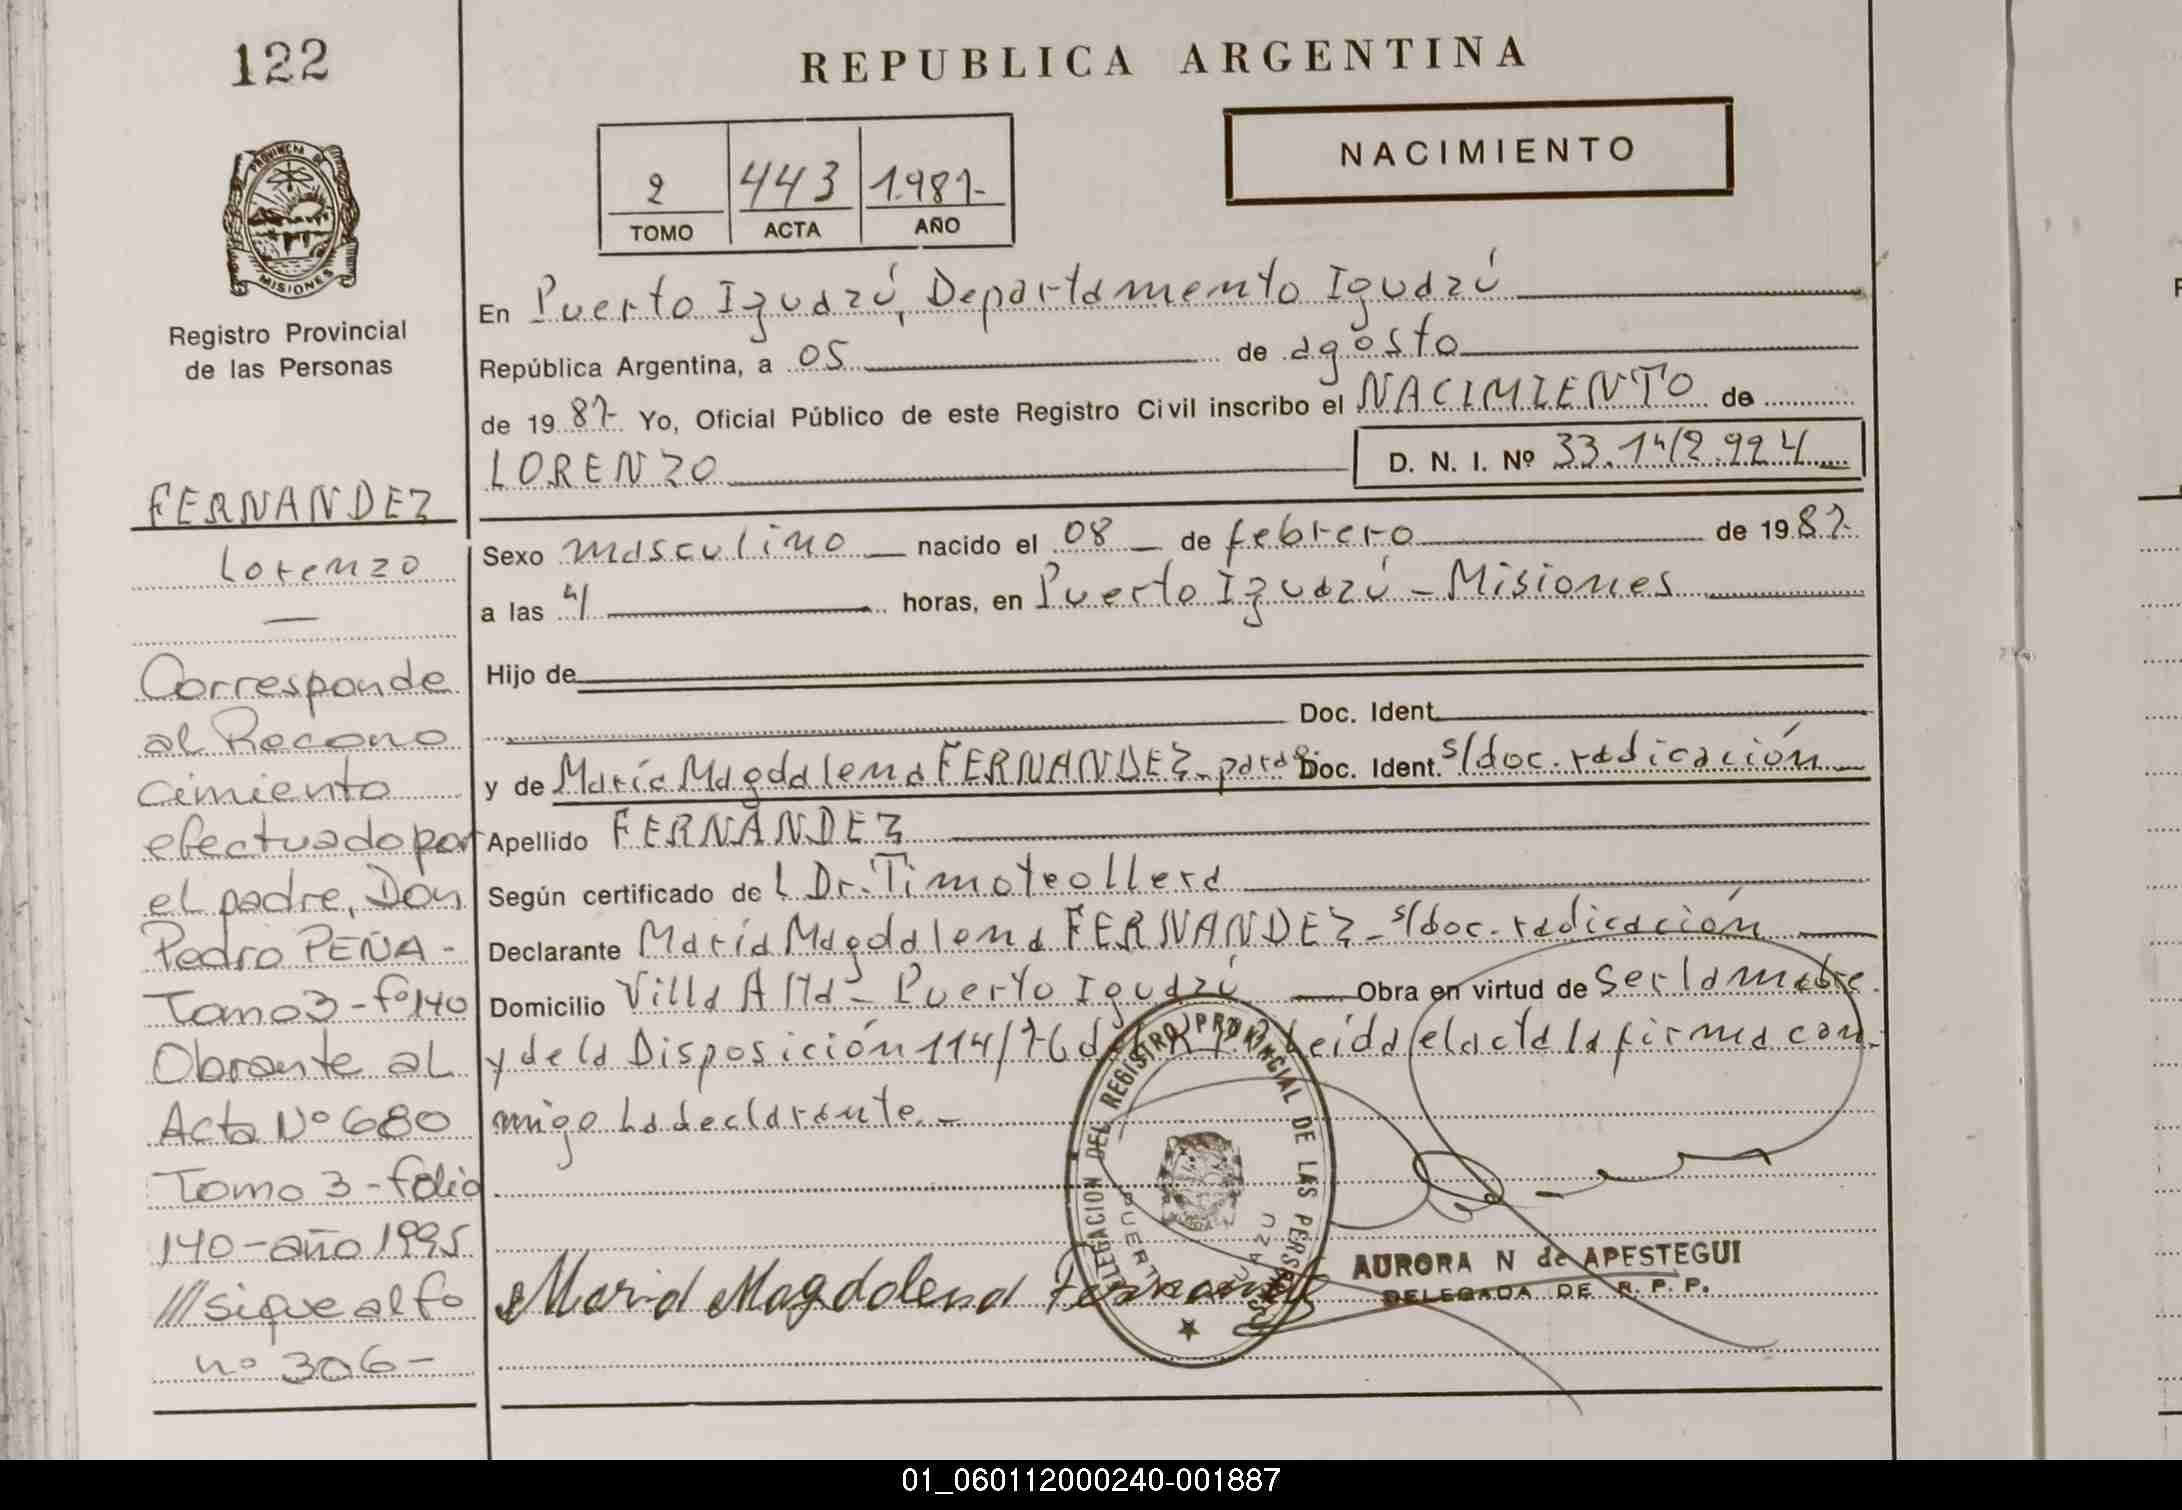 122
REPUBLICA ARGENTINA
NACIMIENTO
2 443 1.987-
TOMO ACTA AÑO
PROVINCIA DE
MISIONES
Registro Provincial
de las Personas
En Puerto Iguazú, Departamento Iguazú
República Argentina, a 05 de agosto
de 19 87- Yo, Oficial Público de este Registro Civil inscribo el NACIMIENTO de
LORENZO D. N. I. Nº 33.142.924
FERNANDEZ
Lorenzo
Sexo masculino nacido el 08 de febrero de 19 87-
a las 4 horas, en Puerto Iguazú - Misiones
Hijo de
Doc. Ident.
y de María Magdalena FERNANDEZ- para Doc. Ident. s/doc. radicación
Apellido FERNANDEZ
Según certificado de l Dr. Timoteo Llera
Declarante María Magdalena FERNANDEZ- s/doc. radicación
Domicilio Villa Alta - Puerto Iguazú Obra en virtud de ser la madre
y de la Disposición 114/76 del Leída el acta la firma con-
migo La declarante.-
Corresponde
al Recono
cimiento
efectuado por
el padre, Don
Pedro PEÑA -
Tomo 3 - fº 140
Obrante al
Acta Nº 680
Tomo 3 - folio
140 - año 1995
/// sigue al fo
nº 306 -
DELEGACION DEL REGISTRO PROVINCIAL DE LAS PERSONAS
PUERTO IGUAZU
Maria Magdalena Fernandez
AURORA N de APESTEGUI
DELEGADA DE R. P. P.
01_060112000240-001887